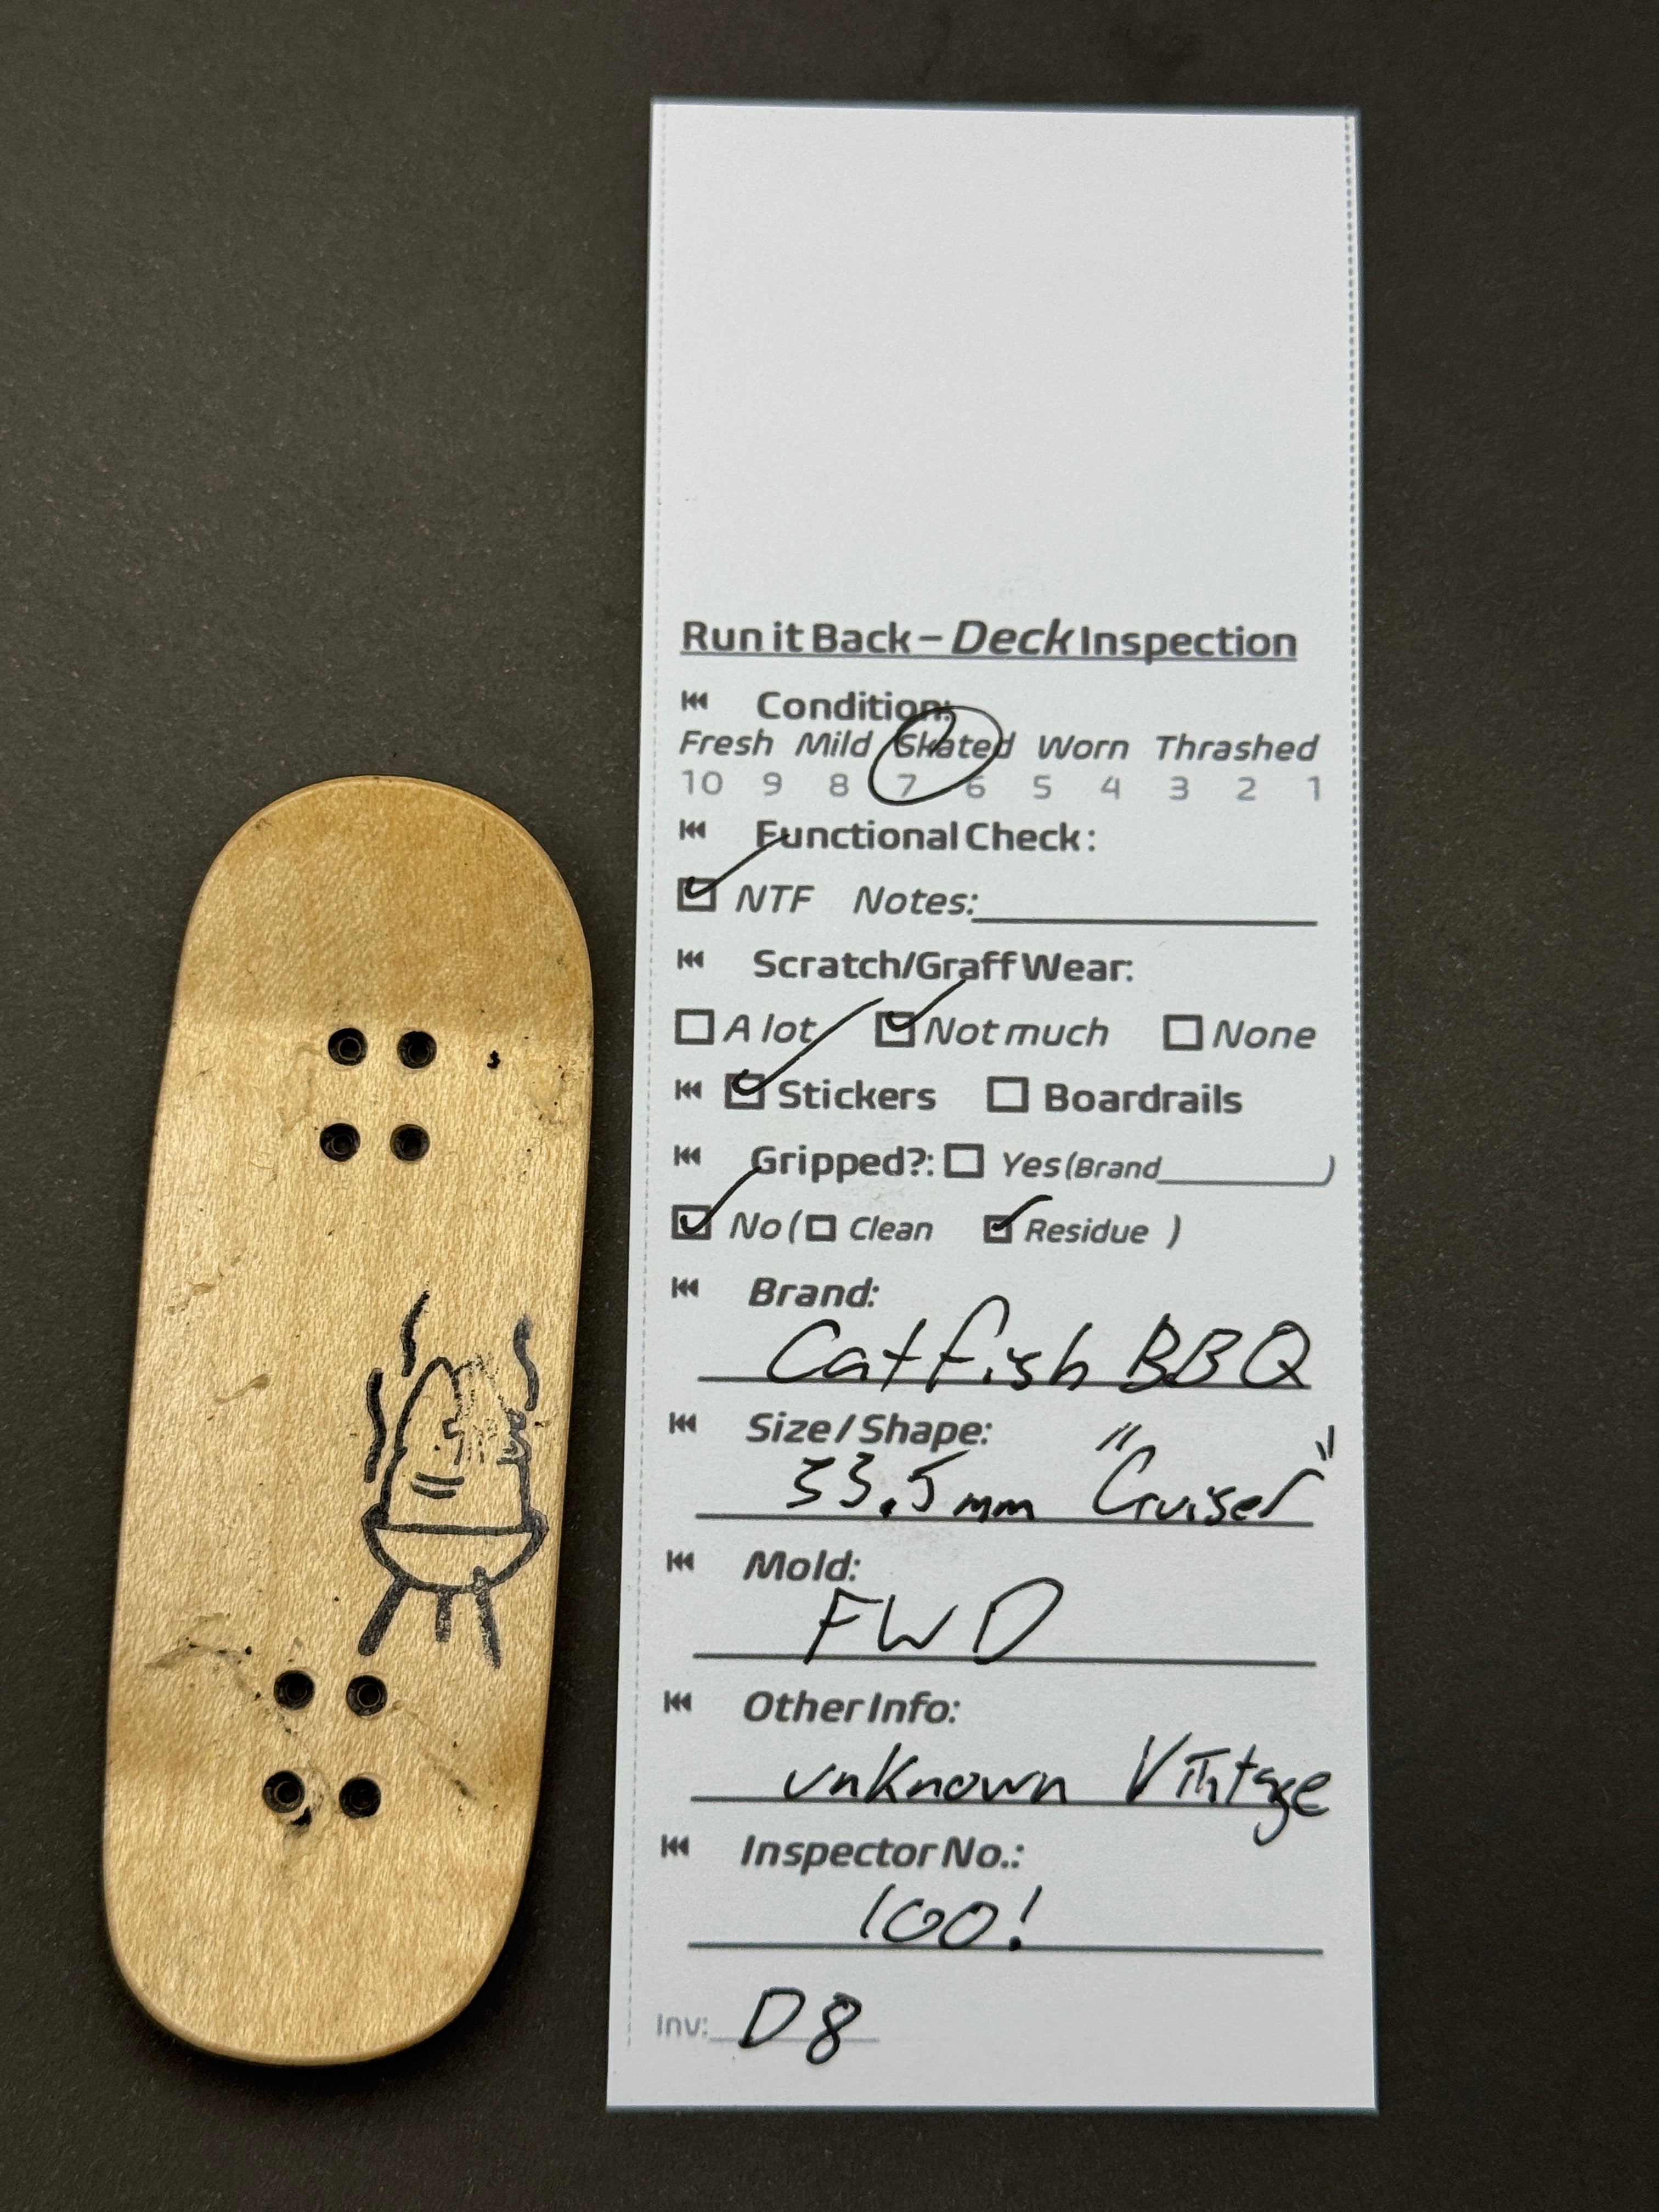 Run it Back – Deck Inspection
Condition:
Fresh Mild Skated Worn Thrashed
10 9 8 7 6 5 4 3 2 1
Functional Check:
NTF Notes:
Scratch/Graff Wear:
A lot Not much None
Stickers Boardrails
Gripped?: Yes (Brand )
No ( Clean Residue )
Brand:
Catfish BBQ
Size / Shape:
33.5mm "Cruiser"
Mold:
FWD
Other Info:
unknown Vintage
Inspector No.:
100!
Inv: D8